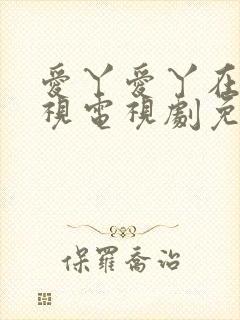 愛丫愛丫在
視電視劇免
保羅喬治